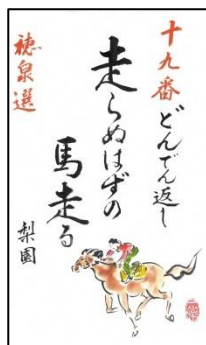 十九番
どんでん返し
走らぬはずの
馬走る
梨園
穂泉選